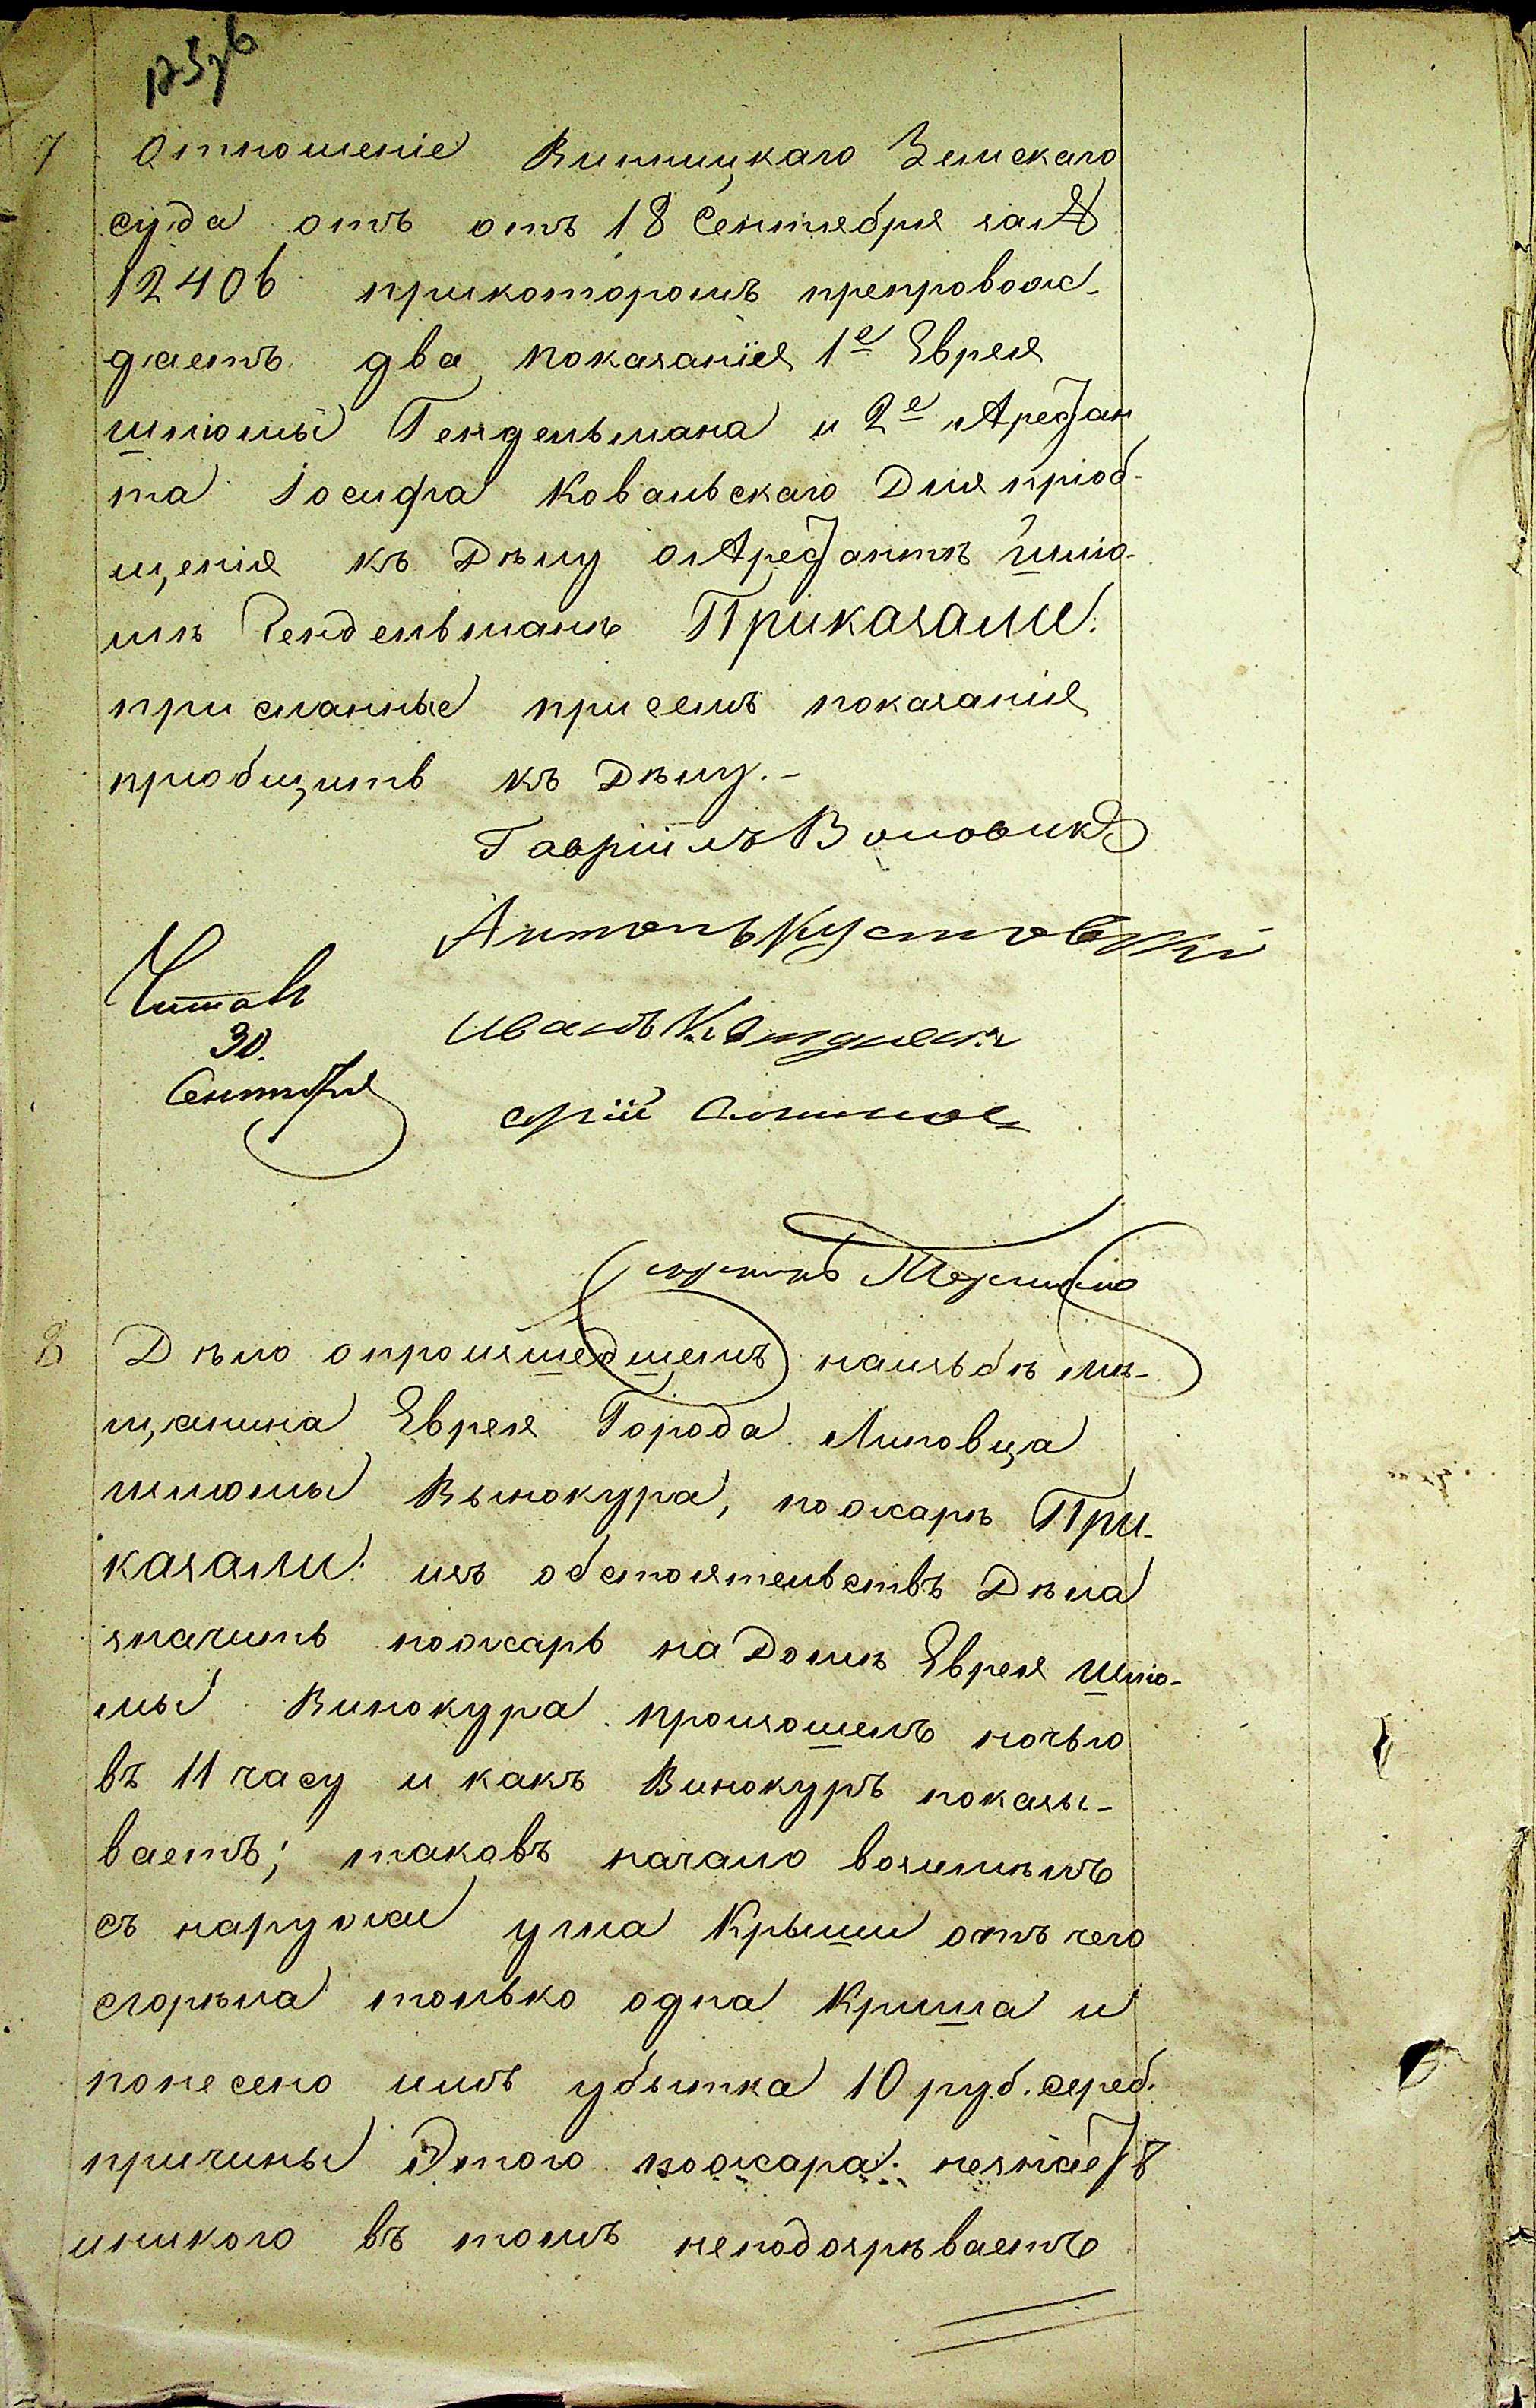 7 Отношеніе Винницкаго Земскаго
суда отъ отъ 18 Сентября за №
12406 прикоторомъ препровож-
даетъ два показанія 1е Еврея
Шлюмы Гендельмана и 2е Арестан
та Іосифа Ковальскаго Для пріоб-
щенія къ Дѣлу о Арестантѣ Шлю-
мѣ Гендельманѣ Приказали:
при сланные при семъ показанія
приобщить къ Дѣлу.-
Гавріилъ Воловикъ
Антонъ Кустовскій
Читалъ
30.
Сентября
Иванъ
8 Дѣло опроизшедшемъ наизбѣ мѣ-
щанина Еврея Города Липовца
шлюмы Винокура, пожарѣ При-
казали: изъ обстоятельствъ Дѣла
значить пожаръ на Домѣ Еврея Шлю-
мы Винокура произошелъ ночью
въ 11 часу и какъ Винокуръ показы-
ваетъ; таковъ начало возимѣлъ
съ наружи угла Крыши отъ чего
сгорѣла только одна Криша и
понесено имъ убытка 10 руб. сереб.
причины Этого пожара: незнаетъ
иникого въ томъ неподозрѣваетъ